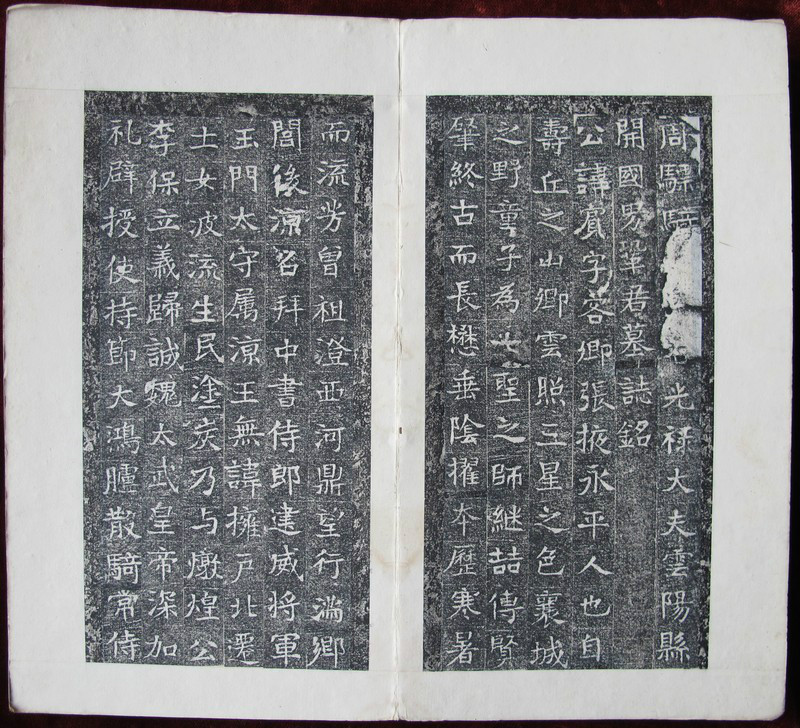 周驃騎光祿大夫雲陽縣
開國男鞏君墓誌銘
公諱賓字客卿張掖永平人也自
壽丘之山卿雲照三星之色襄城
之野童子為七聖之師継喆傳賢
肇終古而長懋垂陰擢夲歷寒暑
而流芳曾祖澄西河鼎望行滿鄉
閭後涼召拜中書侍郎建威將軍
玉門太守属涼王無諱擁戶北遷
士女波流生民塗炭乃与燉煌公
李保立義歸誠魏太武皇帝深加
礼辟授使持節大鴻臚散騎常侍